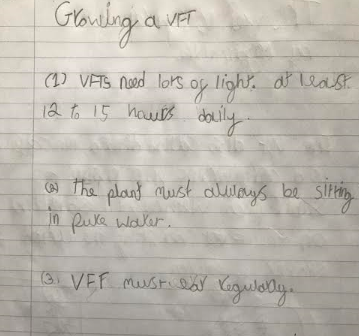 Growing a VFT
(1) VFTs need lots of light. at least
12 to 15 hours daily.
(2) The plant must always be sitting
in pure water.
(3. VFF must eat regularly.